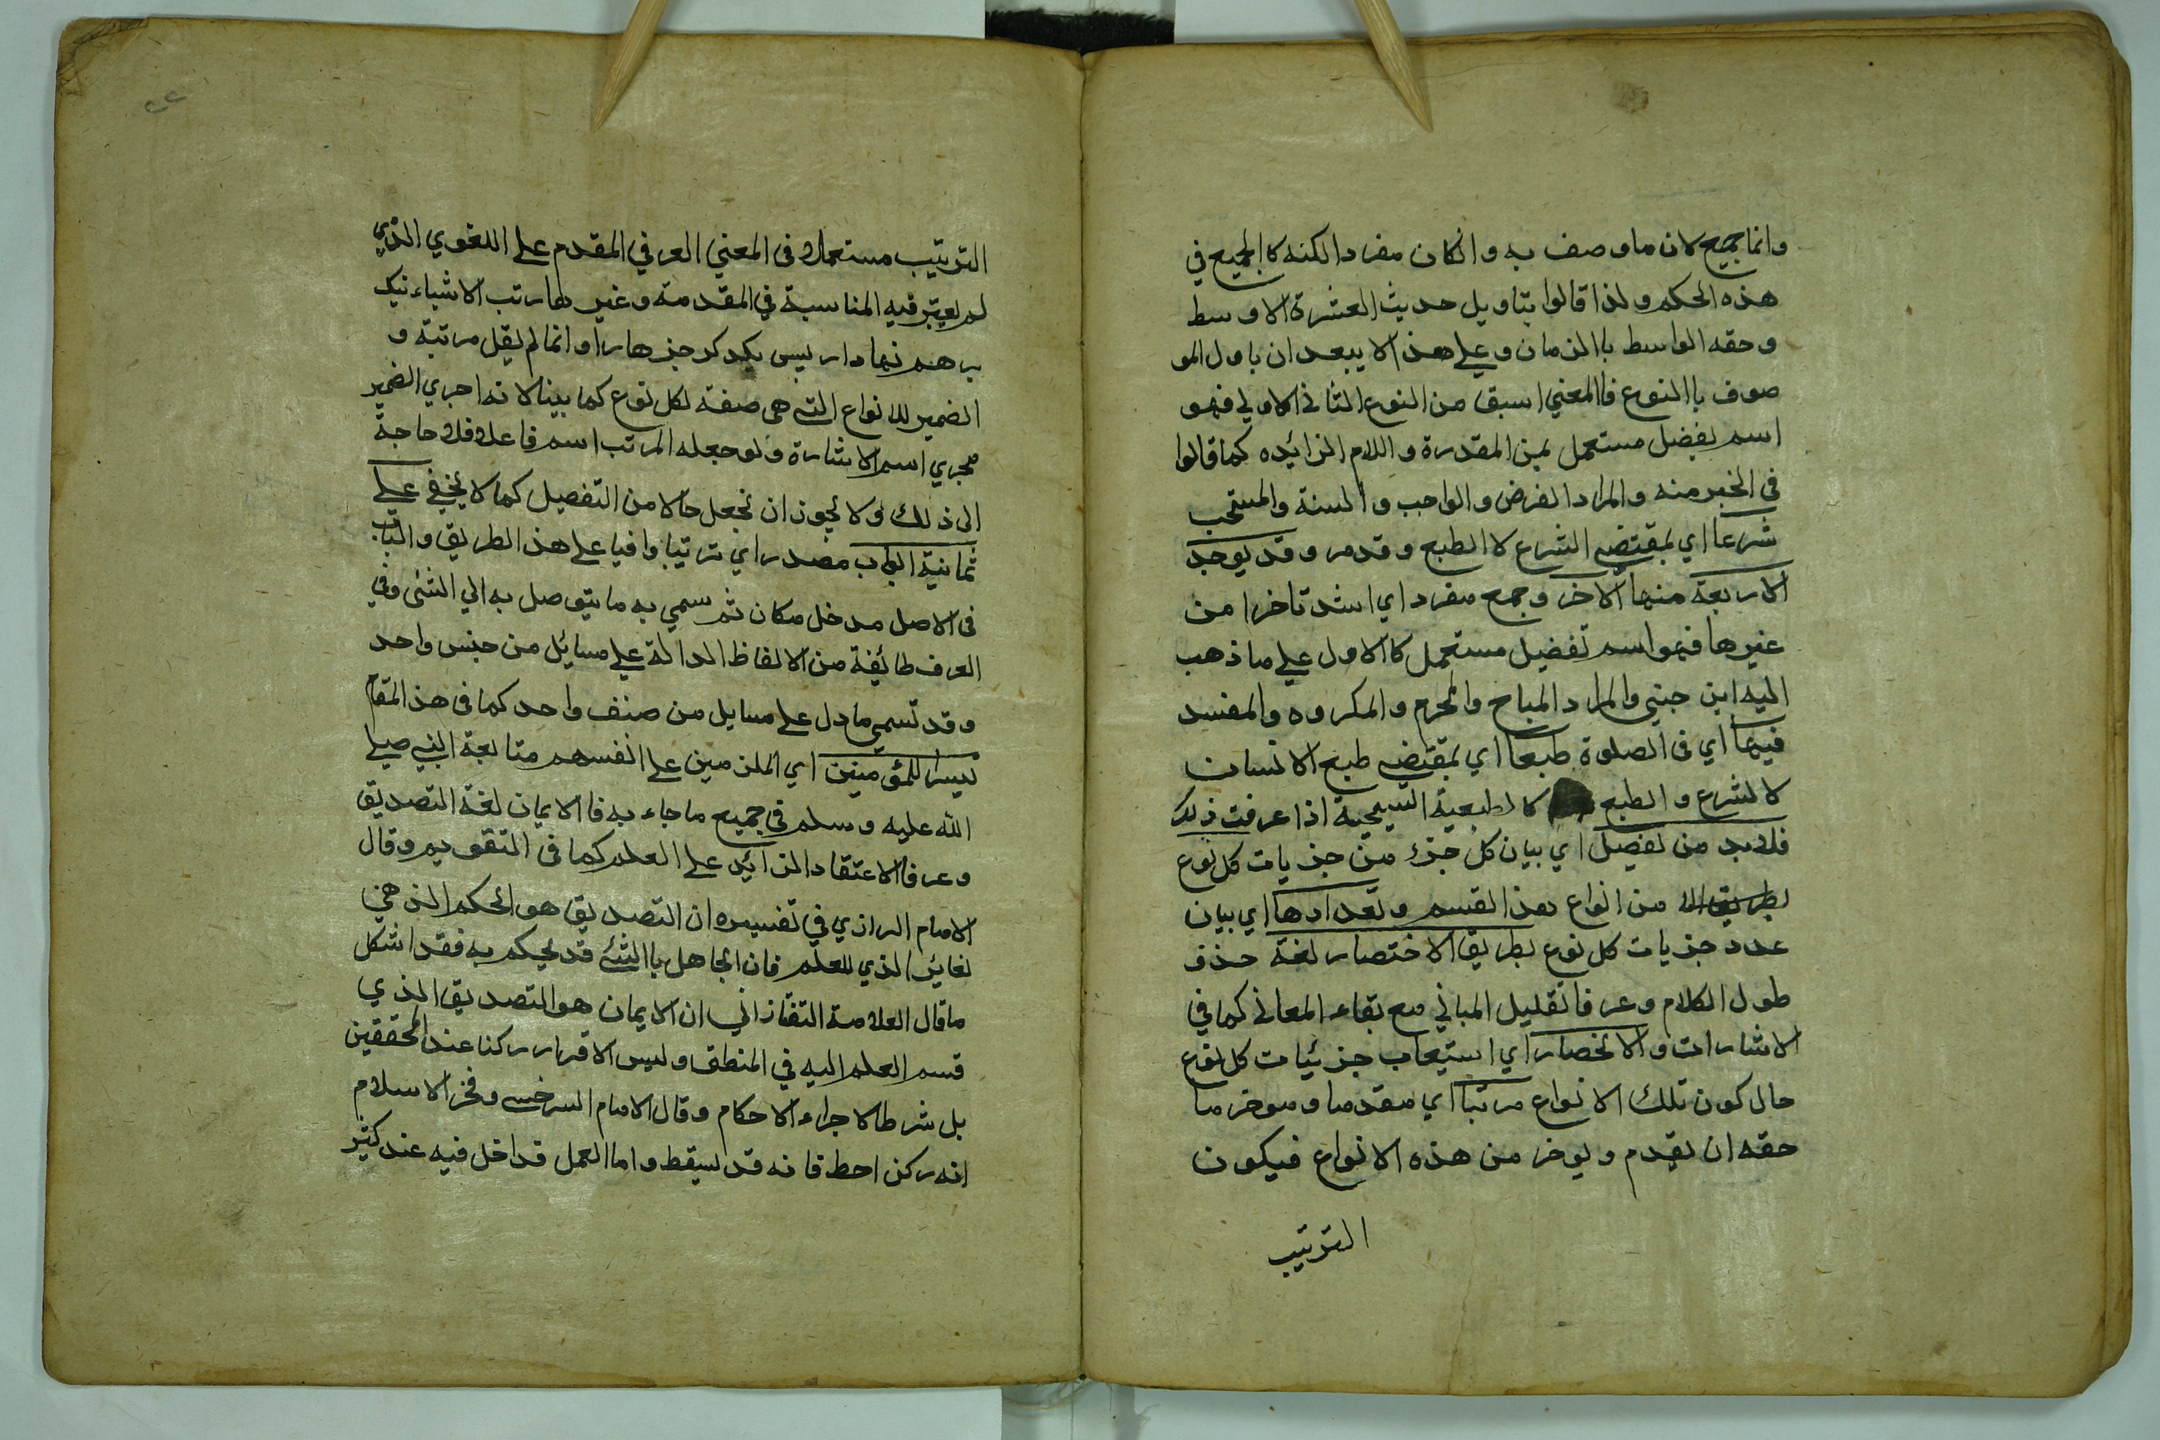 وانما جميع لان ما وصف به وانكان مفردا لكنه كا الجميع في
هذه الحكم ولذا قالوا بتاويل حديث العشرة الاوسط
وحقه الواسط با الزمان وعلي هذا لا يبعد ان ياول المو
صوف با النوع فا المعني اسبق من النوع الثاني الاولي فهو
اسم تفضل مستعمل بمن المقدرة واللام الزائده كما قالوا
في الخبر منه والمراد الفرض والواجب والسنة والمستحب
شرعا اي بمقتضي الشرع لا الطبع وقدم وقد يوجد
الاربعة منها الآخر وجمع مفرد اي اشد تاخرا من
غيرها فهو اسم تفضيل مستعمل كا الاول علي ما ذهب
اليه ابن جني والمراد المباح والمحرم والمكروه والمفسد
فيها اي في الصلوة طبعا اي بمقتضي طبع الانسان
لا الشرع والطبع كا لطبعية السيحية اذا عرفت ذلك
فلا بد من تفصيل اي بيان كل جزء من جزيات كل نوع
من انواع هذا القسم وتعدادها اي بيان
عدد جزيات كل نوع بطريق الاختصار لغة حذف
طول الكلام وعرفا تقليل المباني مع بقاء المعاني كما في
الاشارات والانحصار اي استيعاب جزئيات كل نوع
حال كون تلك الانواع مرتبا اي مقدما وموخر ما
حقه ان يقدم ويوخر من هذه الانواع فيكون
الترتيب
٢٢
الترتيب مستعملا في المعني العرفي المقدم علي اللغوي الذي
لم يعتبر فيه المناسبة في المقدمة وغيرها رتب الاشياء نيك
برهم نهاد ار بسي يكد كر جزها را وانما لم يقل مرتبة و
الضمير للانواع التي هي صفة لكل نوع كما بينا لانه اجري الضمير
مجري اسم الاشارة ولو جعله المرتب اسم فاعل فلا حاجة
الي ذلك ولا يجوز ان تجعل حالا من التفصيل كما لا يخفي علي
ثمانية ابواب مصدر اي ترتيبا وافيا علي هذا الطريق والباب
في الاصل مدخل مكان ثم سمي به ما يتوصل به الي الشئ وفي
العرف طائفة من الالفاظ الدالة علي مسائل من جنس واحد
وقد تسمي ما دل علي مسايل من صنف واحد كما في هذا المقام
تيسرا للمؤمنين اي الملزمين علي انفسهم متابعة النبي صلي
الله عليه وسلم في جميع ما جاء به فا الايمان لغة التصديق
وعرفا الاعتقاد الزائد علي العلم كما في التقويم وقال
الامام الرازي في تفسيره ان التصديق هو الحكم الذهني
لغائر الذي للعلم فان الجاهل با الشئ قد يحكم به فقد اشكل
ما قال العلامة التفتازاني ان الايمان هو التصديق الذي
قسم العلم اليه في المنطق وليس الاقرار ركنا عند المحققين
بل شرط الاجراء الاحكام وقال الامام السرخسي وفخر الاسلام
انه ركن احط فانه قد يسقط واما العمل قداخل فيه عند كثير